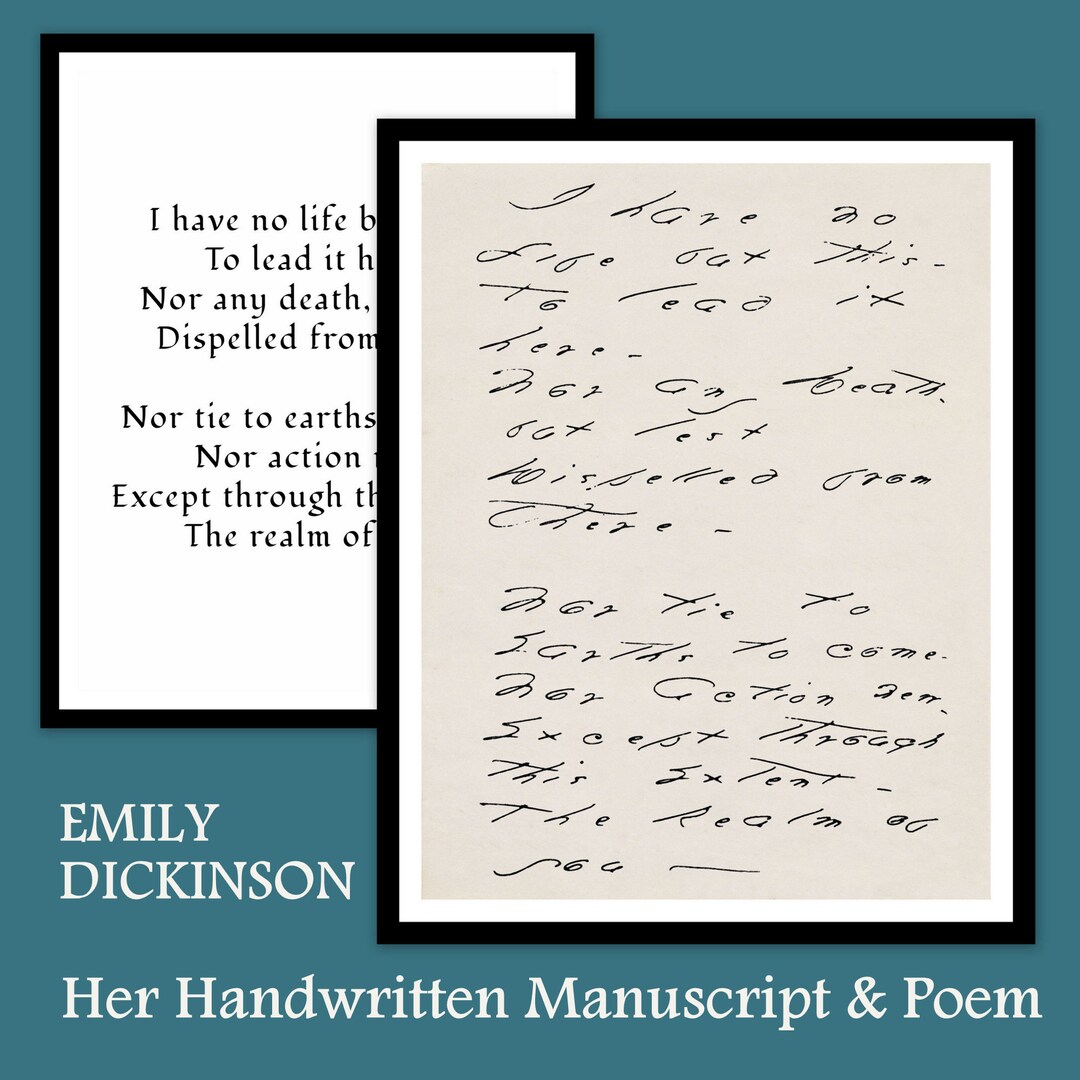 I have no life b
To lead it h
Nor any death,
Dispelled from
Nor tie to earths
Nor action
Except through th
The realm of
I have no
Life but this -
To lead it
here -
Nor any Death -
but lest
Dispelled from
there -
Nor tie to
Earths to come -
Nor Action new -
Except through
this Extent -
The Realm of
you —
EMILY
DICKINSON
Her Handwritten Manuscript & Poem